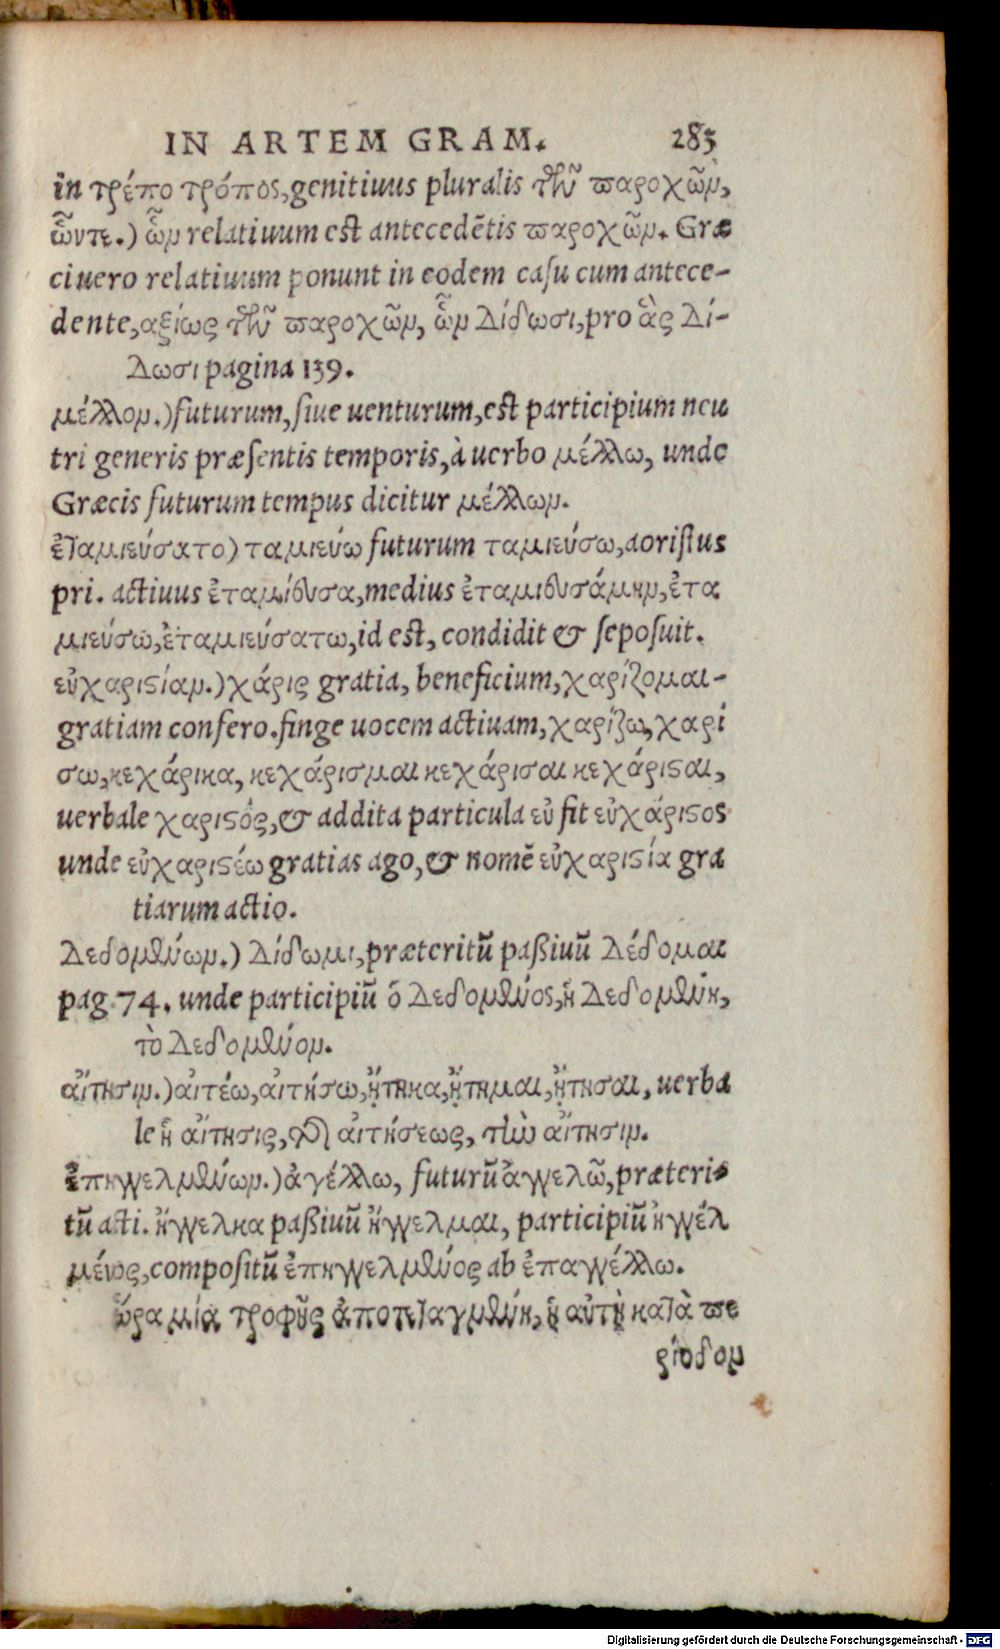 IN ARTEM GRAM. 283
in τρέπο τρόπος, genitiuus pluralis τῶν παροχῶν,
ὧντε.) ὧν relatiuum est antecedẽtis παροχῶν. Græ
ci uero relatiuum ponunt in eodem casu cum antece-
dente, αξίως τῶν παροχῶν, ὧν δίδωσι, pro ἃς δί-
δωσι pagina 139.
μέλλον.) futurum, siue uenturum, est participium neu
tri generis præsentis temporis, à uerbo μέλλω, unde
Græcis futurum tempus dicitur μέλλων.
ἐταμιεύσατο) ταμιεύω futurum ταμιεύσω, aoristus
pri. actiuus ἐταμίευσα, medius ἐταμιευσάμην, ἐτα
μιεύσω, ἐταμιεύσατω, id est, condidit & seposuit.
εὐχαριστίαν.) χάρις gratia, beneficium, χαρίζομαι-
gratiam confero. finge uocem actiuam, χαρίζω, χαρί
σω, κεχάρικα, κεχάρισμαι κεχάρισαι κεχάρισται,
uerbale χαριστός, & addita particula εὐ fit εὐχάριστος
unde εὐχαριστέω gratias ago, & nomẽ εὐχαριστία gra
tiarum actio.
δεδομένων.) δίδωμι, præteritũ paßiuũ δέδομαι
pag. 74. unde participiũ ὁ δεδομένος, ἡ δεδομένη,
τὸ δεδομένον.
αἴτησιν.) αἰτέω, αἰτήσω, ᾔτηκα, ᾔτημαι, ᾔτησαι, uerba
le ἡ αἴτησις, τῆς αἰτήσεως, τὴν αἴτησιν.
ἐπηγγελμένων.) ἀγέλλω, futurũ ἀγγελῶ, præteri-
tũ acti. ἤγγελκα paßiuũ ἤγγελμαι, participiũ ἠγγέλ
μένος, compositũ ἐπηγγελμένος ab ἐπαγγέλλω.
ὥρα μία τροφῆς ἀποτεταγμένη, ἡ αὐτὴ κατὰ πε
ρίοδον
Digitalisierung gefördert durch die Deutsche Forschungsgemeinschaft - DFG